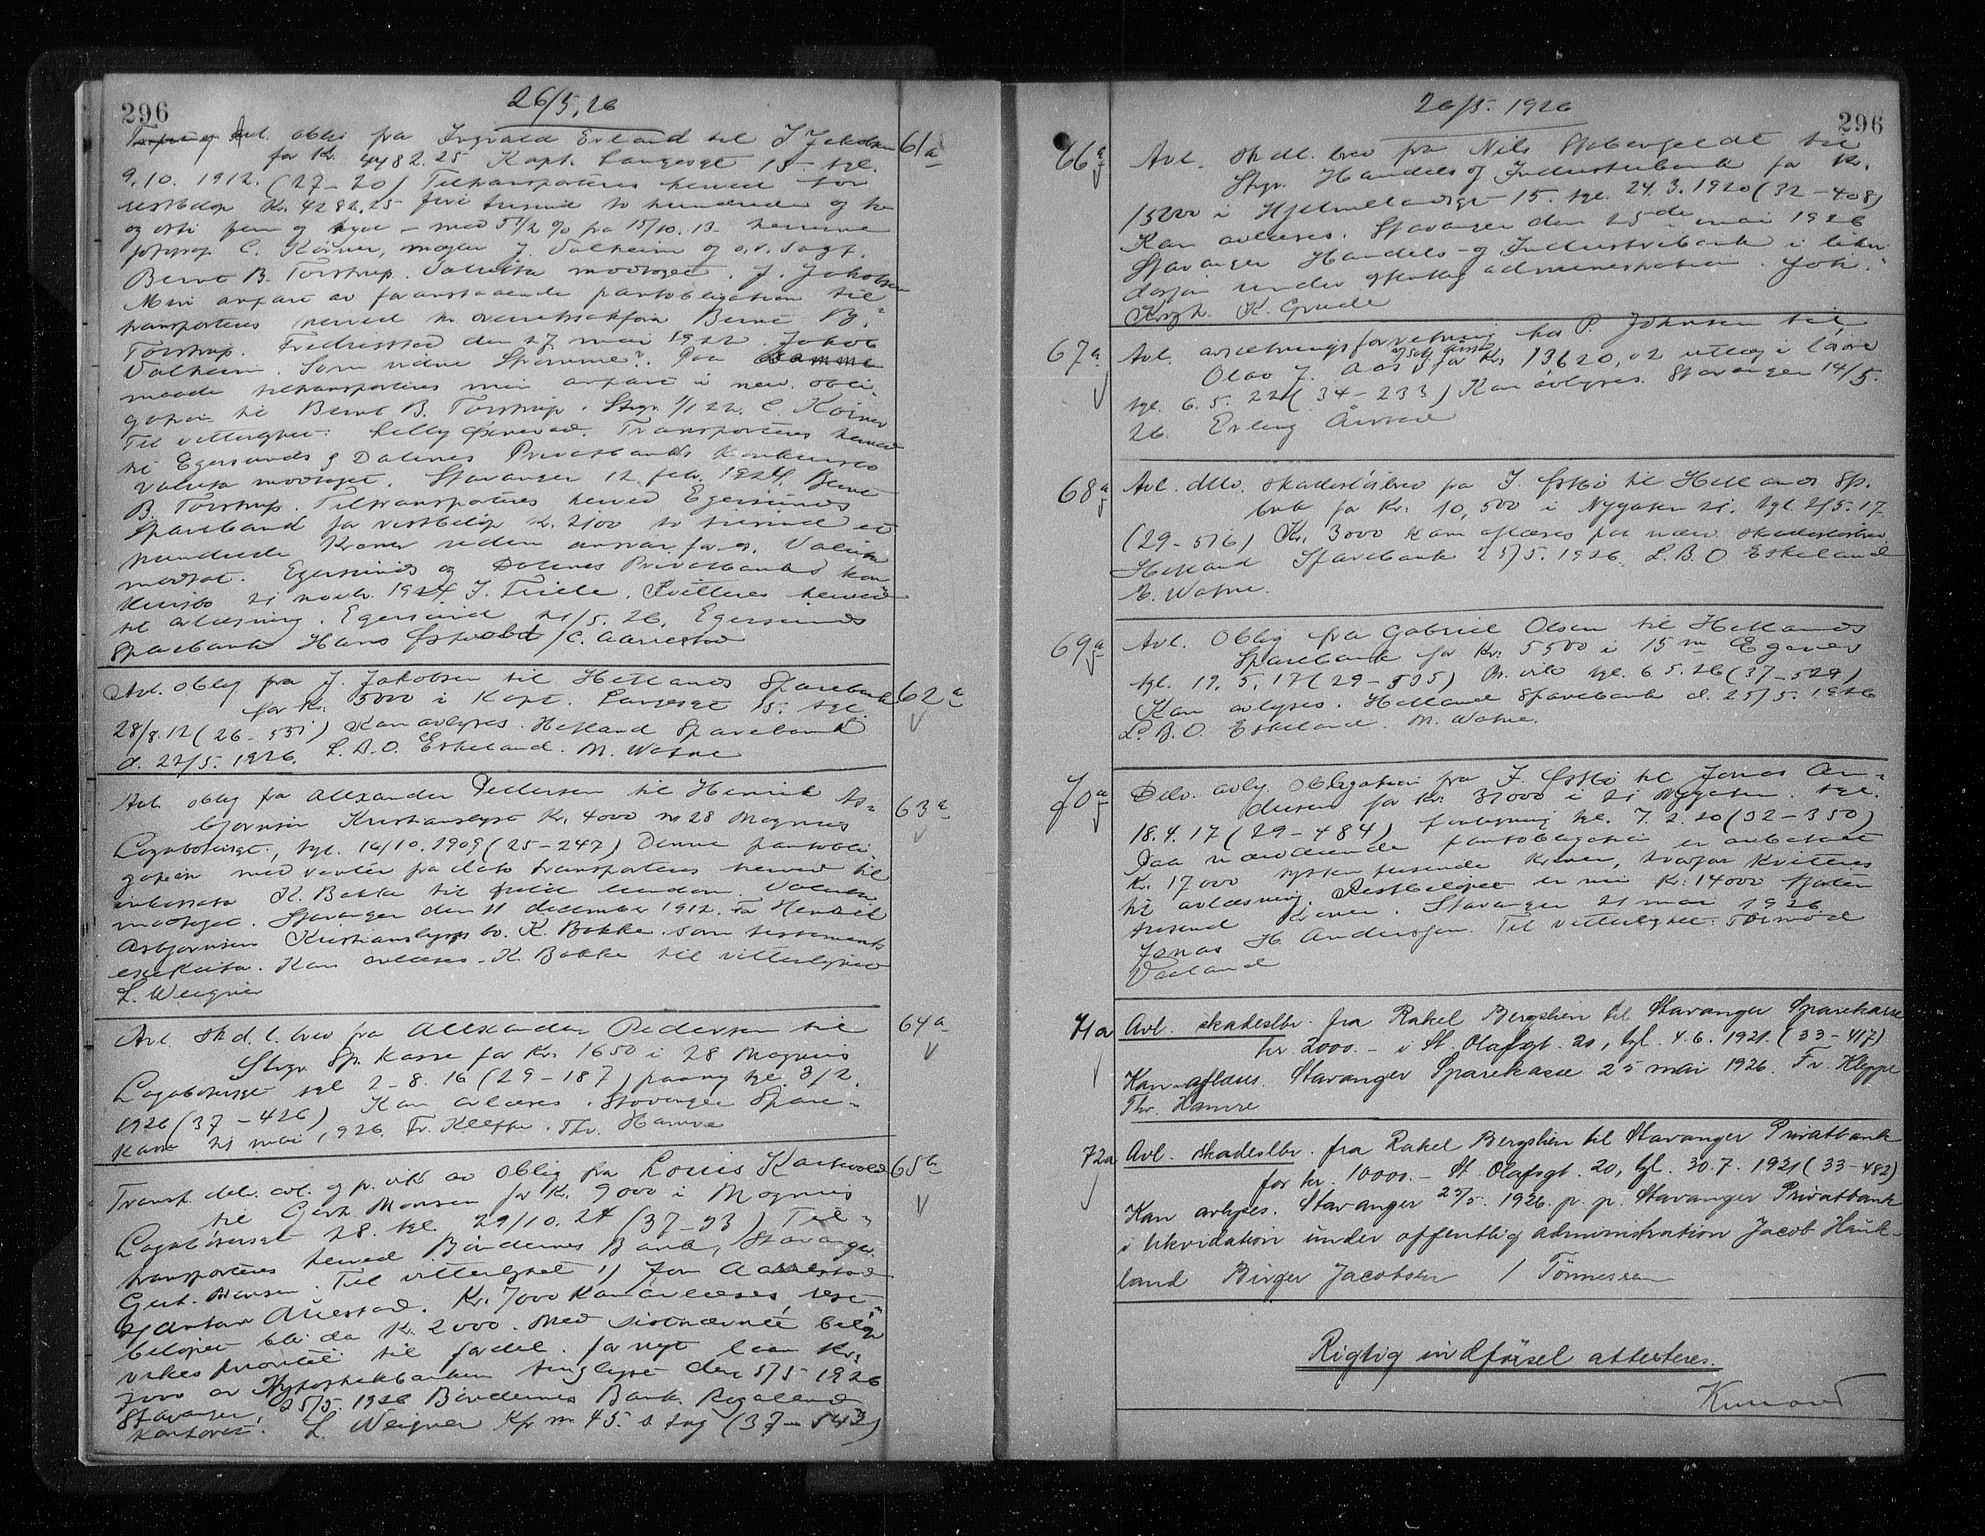 296
26/5, 26
avl. oblig fra Ingvald Erland til J. Jakobsen
for Kr. 4482.25 Kapt. Langesgt 15 tgl.
9.10. 1912. (27-20) Tiltransporteres herved for
restbeløp Kr. 4282,25 fire tusind to hundrede og
og otti fem og tyve – med 5 1/2 % fra 15/10. 13. herrerne
C. Körner, mægler J. Valheim og o.r. sagf.
Bernt B. Torstrup. Valuta modtaget. J. Jakobsen
Min anpart av foranstaaende pantobligation til
transporteres herved til overretssakfører Bernt B.
Torstrup. Fredrikstad den 27 mai 1922. Jakob
Valheim. Som vidne Paa samme
maade tiltransporteres min anpart i næv. obli
gation til Bernt B. Torstrup. Stvgr. 1/1 22. C. Körner
Til vitterlighet: Transporteres herved
til Egersunds & Dalenes Privatbanks konkursbo
Valuta modtaget. Stavanger 12 febr. 1924. Bernt
B. Torstrup. Tiltransporteres herved Egersunds
Sparebank for restbeløp kr. 2100 to tusend et
hundrede Kroner uten ansvar for os. Valuta
modtat. Egersunds og Dalenes Privatbanks kon-
kursbo 21 novbr. 1924 J. Feile. Kvitteres herved
til avlæsning. Egersund 21/5. 26. Egersunds
Sparebank Hans / C. Aarrestad
61a
Avl. oblig fra J. Jakobsen til Hetlands Sparebank
for Kr. 5000 i Kapt. Langesgt 15. tgl.
28/8.12 (26-551) Kan avlyses. Hetland Sparebank
d. 22/5. 1926. L.B.O. Eskeland. M. Watne
62a
Avl. oblig fra Alexander Pedersen til Henrik As-
bjørnsen Kristianslyst Kr. 4000 m 28 Magnus
Lagabøtersgt., tgl. 16/10. 1909 (25-247) Denne pantobli
gation med renter fra dato transporteres herved til
K. Bakke til fuld eiendom. Valuta
modtaget. Stavanger den 11 december 1912. For Henrik
Asbjørnsen Kristianslysts bo. K. Bakke. som testaments
exekutor. Kan avlæses. K. Bakke til vitterlighet
L. Weigner
63a
Avl. skd. l. brev fra Alexander Pedersen til
Stvgr. Sp. Kasse for Kr. 1650 i 28 Magnus
Lagabøtersgt tgl 2-8.16 (29-187) paany tgl. 3/2.
1926 (37-426) Kan avlæses. Stavanger Spare-
kasse 21 mai 1926. Fr. Kleppe. Thr. Hamre
64a
Transp. delv. avl. og pr. vik av oblig fra Louis Karlsvold
til Gert Monsen for Kr. 9000 i Magnus
Lagabøtersgt 28. tgl. 29/10. 24 (37-93) Til-
transporteres herved Bøndernes Bank, Stavanger.
Gert. Monsen. Til vitterlighet 1) Jon Aarrestad
2) Anton Auestad. Kr. 7000 kan avlæses, rest-
beløpet blir da Kr. 2000. Med sistnævnte beløp
vikes prioritet til fordel for nyt laan Kr.
7000 av Hypotekbanken tinglyst den 5/5 1926
Stavanger, 25/5. 1926 Bøndernes Bank Rogaland
kontoret. L. Weigner Kfr nr 45. s. dag (37-543)
65b
26/5. 1926
296
66a
Avl. skdl. brev fra Nils Stabergeldt til
Stvgr. Handels og Industribank for Kr.
15000 i Hjelmelandsgt 15. tgl. 24.3.1920 (32-408)
Kan avlæses. Stavanger den 25de mai 1926
Stavanger Handels- og Industribank i likvi
dasjon under offentlig administration Joh.
Krogh. K. Grude
67a
Avl. avsætningsforretning hos P. Johnsen til
Olav J. Aas for Kr 13620,02 utlæg i løsøre
tgl. 6.5.22 (34-233) Kan avlyses. Stavanger 14/5.
26. Erling Aarrestad
68a
Avl. delv. skadesløsbrev fra J. Østbø til Hetlands Sp.
bnk for Kr. 10,500 i Nygaten 21. tgl 2/5.17
(29-516) Kr. 3000 kan aflæses paa nærv. skadesløsbrev.
Hetland Sparebank 25/5. 1926. L.B.O Eskeland
M. Watne.
69a
Avl. Oblig fra Gabriel Olsen til Hetlands
Sparebank for Kr. 5500 i 15 m Egenes
tgl. 12.5.17 (29-525) Pr. vik tgl. 6.5.26 (37-529)
Kan avlyses. Hetland Sparebank d. 25/5. 1926
L.B.O. Eskeland. M. Watne.
70a
Delv. avlg. Obligation fra J. Østbø til Jonas An-
dersen for Kr. 31000 i 21 Nygaten tgl.
18.4.17 (29-484) forlægning tgl. 7.2.20 (32-350)
Paa nærværende pantobligation er avbetalt
Kr. 17000 sytten tusende kroner, hvorfor kvitteres
til avlæsning. Restbeløpet er nu Kr: 14000 fjorten
tusend Kroner. Stavanger 21 mai 1926
Jonas H. Andersen. Til vitterlighet: Tormod
Varland
71a
Avl. skadeslbr. fra Rakel Bergslien til Stavanger Sparekasse
kr 2000.- i St. Olafsgt. 20, tgl. 4.6. 1921. (33-417)
Kan aflæses. Stavanger Sparekasse 25 mai 1926. Fr. Kleppe
Thr. Hamre
72a
Avl. skadeslbr. fra Rakel Bergslien til Stavanger Privatbank
for kr. 10000.- St. Olafsgt. 20, tgl. 30.7. 1921 (33-482)
Kan avlyses. Stavanger 25/5. 1926. p. p. Stavanger Privatbank
i likvidation under offentlig administration Jacob Hauk-
land Birger Jacobsen / Tönnessen
Rigtig indførsel attesteres.